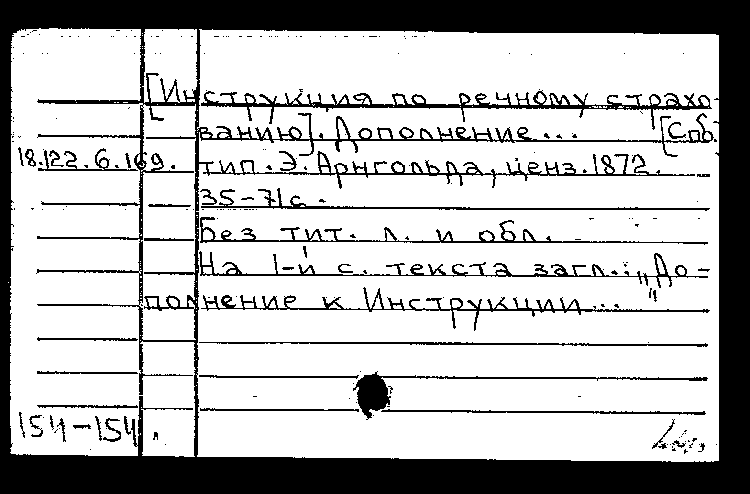 [Инструкция по речному страхо-
ванию]. Дополнение... [Спб.
18.122.6.169. тип. Э. Арнгольда, ценз. 1872.
35-71 с.
Без тит. л. и обл.
На 1-й с. текста загл.: „До=
полнение к Инструкции..."
154-154.